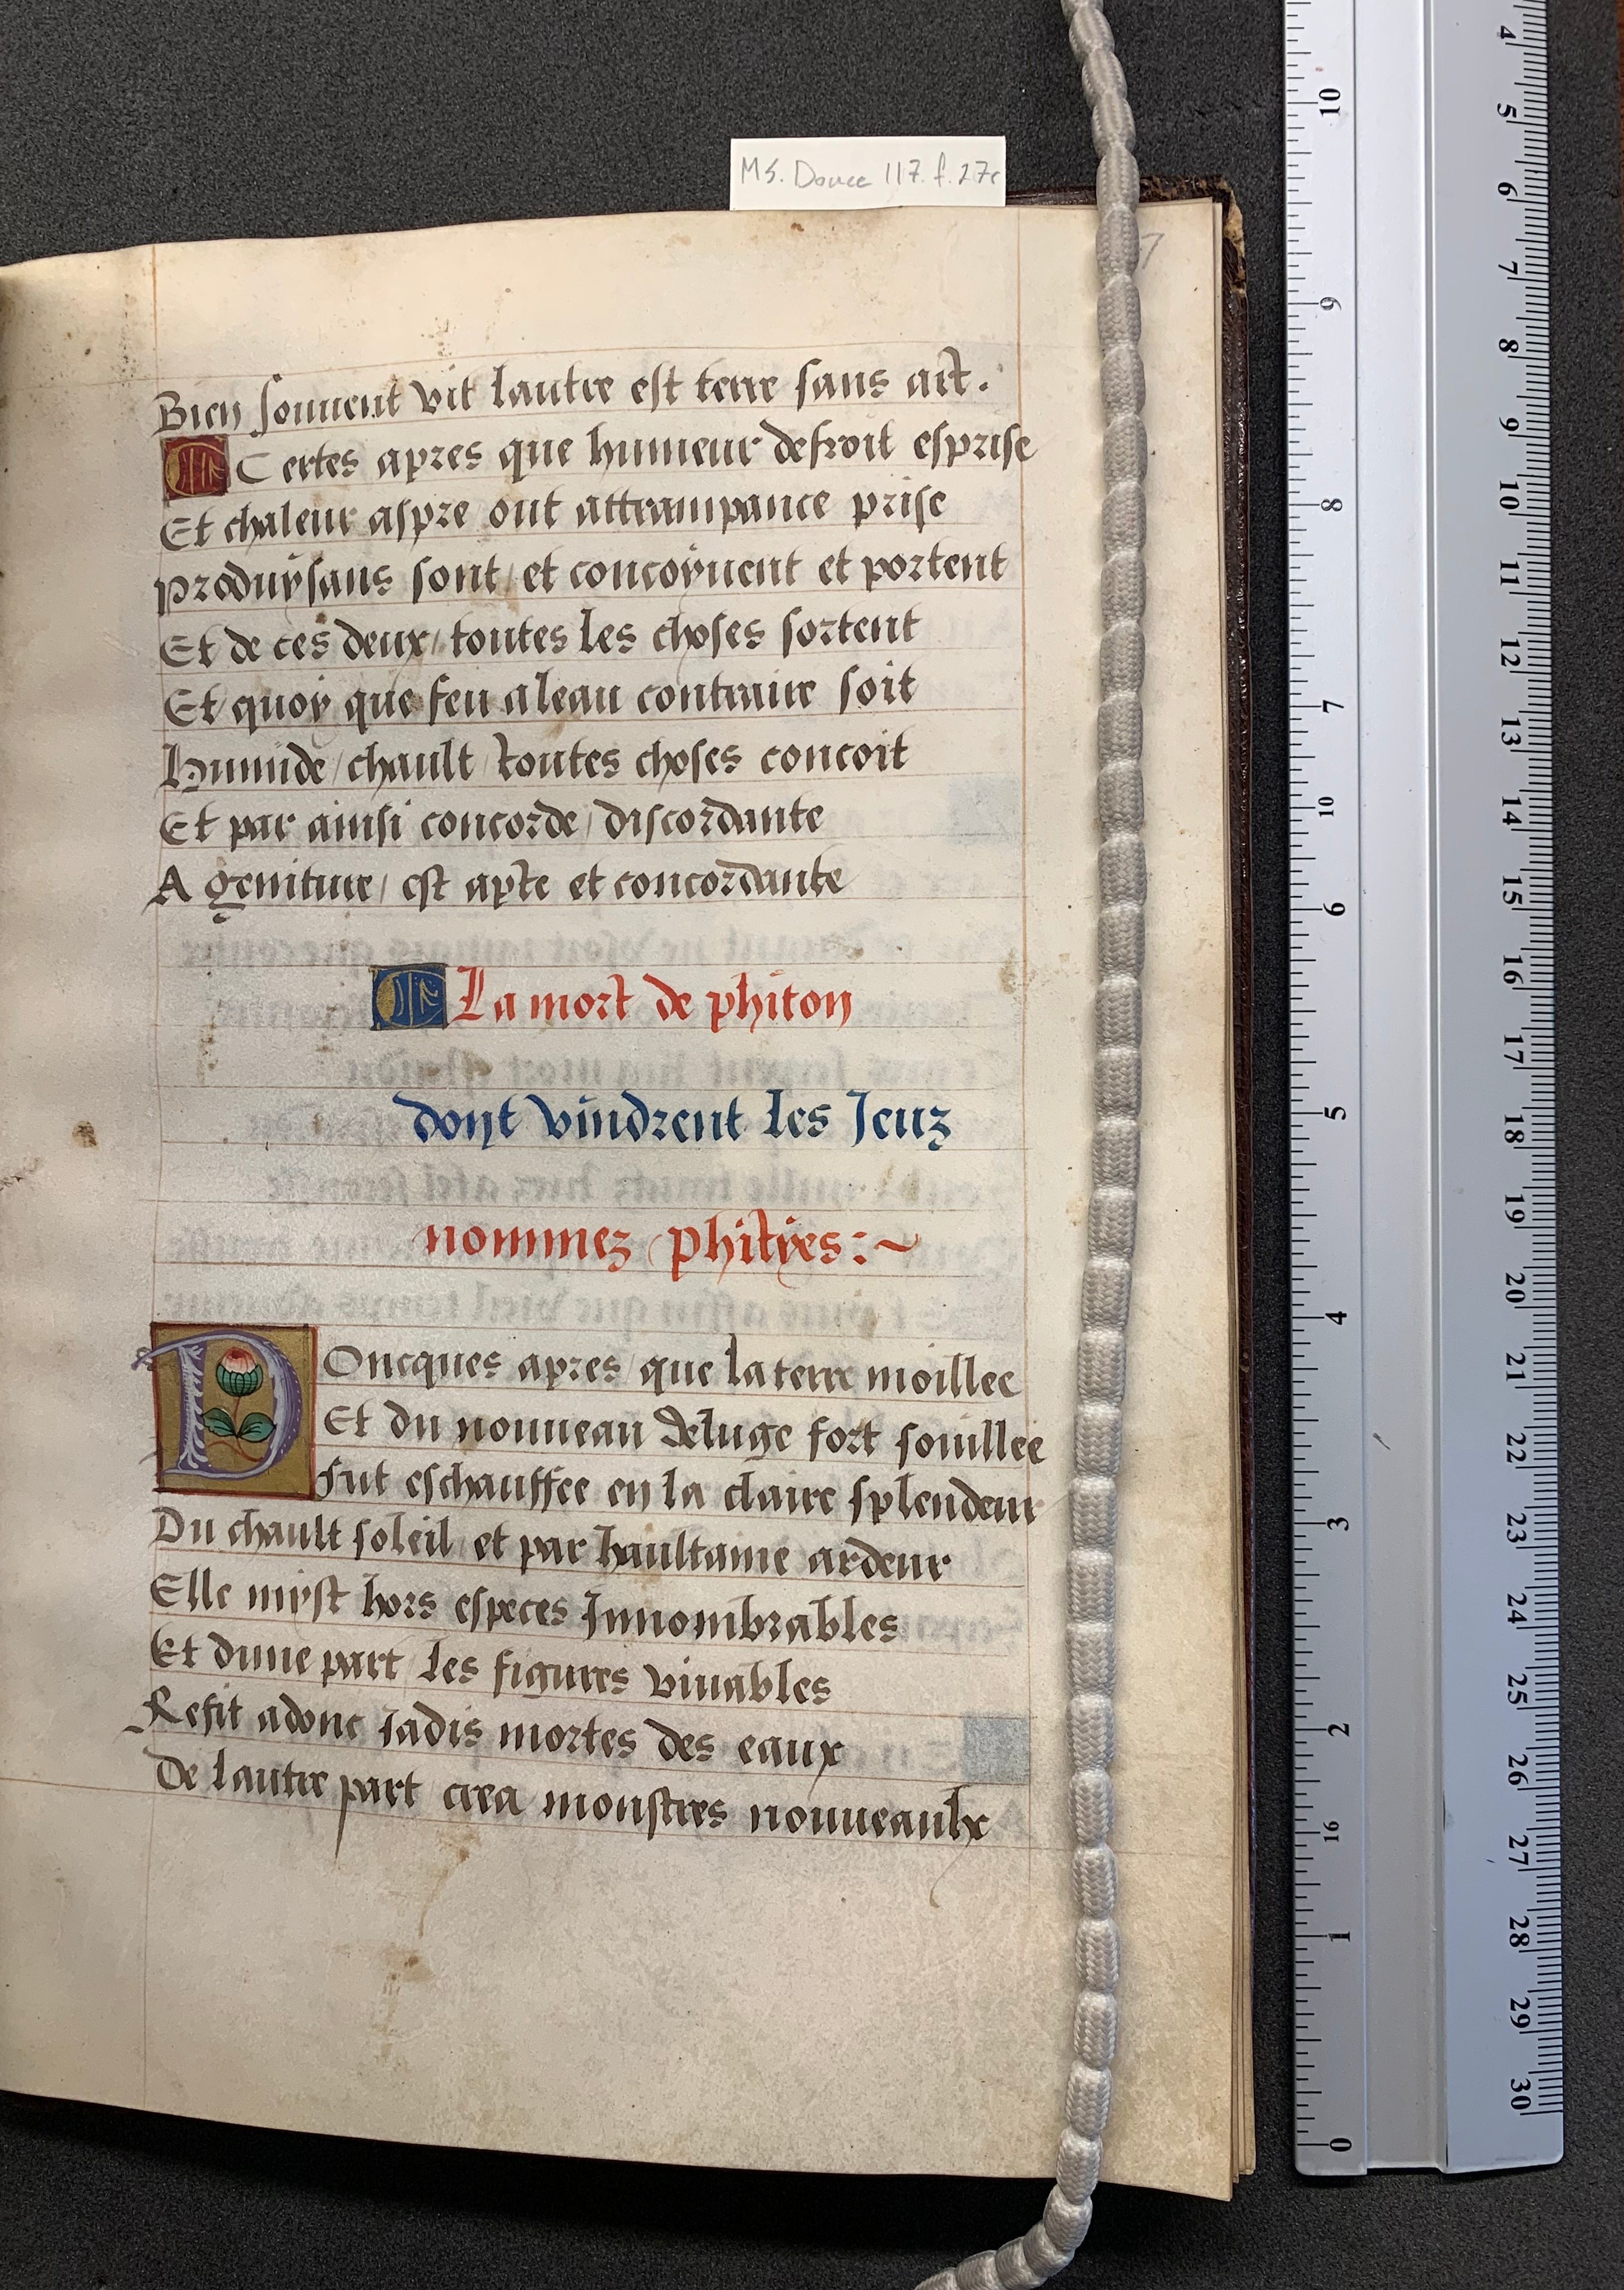 MS. Douce 117. f. 27r
7
Bien souuent vit lautre est terre sans art.
Certes apres que humeur defroit esprise
Et chaleur aspre ont attrampance prise
produysans sont / et concoyuent et portent
Et de ces deux / toutes les choses sortent
Et quoy que feu aleau contraire soit
Humide / chault / toutes choses concoit
Et par ainsi concorde / discordante
A geniture / est apte et concordante
La mort de phiton
dont vindrent les Jeuz
nommez phities :~
Doncques apres / que laterre moillee
Et du nouueau deluge fort souillee
Fut eschauffee en la claire splendeur
Du chault soleil / et par haultaine ardeur
Elle myst hors especes Innombrables
Et dune part / les figures viuables
Refit adonc iadis mortes des eaux
De lautre part crea monstres nouueaulx
10
9
8
7
10
6
5
4
3
2
16
1
0
4
5
6
7
8
9
10
11
12
13
14
15
16
17
18
19
20
21
22
23
24
25
26
27
28
29
30